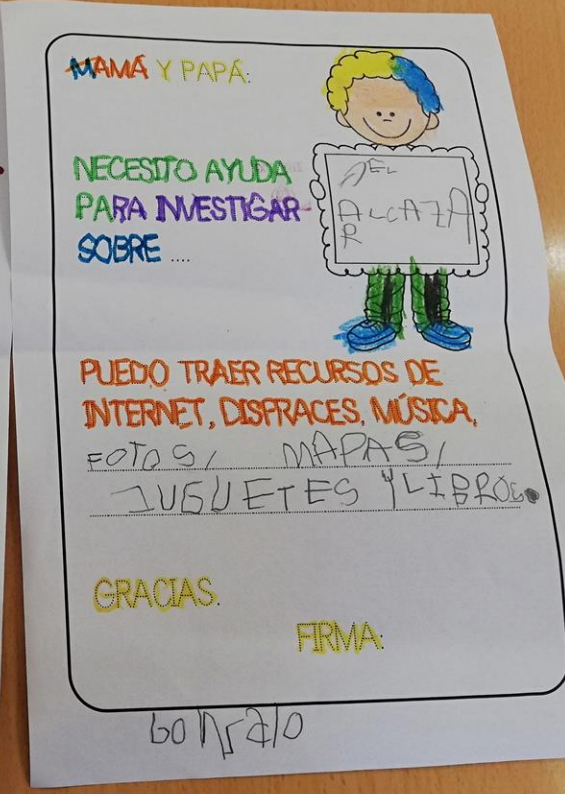 MAMÁ Y PAPÁ:
NECESITO AYUDA
PARA INVESTIGAR
SOBRE ....
EL
ALCAZA
R
PUEDO TRAER RECURSOS DE
INTERNET, DISFRACES, MÚSICA,
FOTOS, MAPAS,
JUGUETES Y LIBROS.
GRACIAS.
FIRMA:
Gonzalo